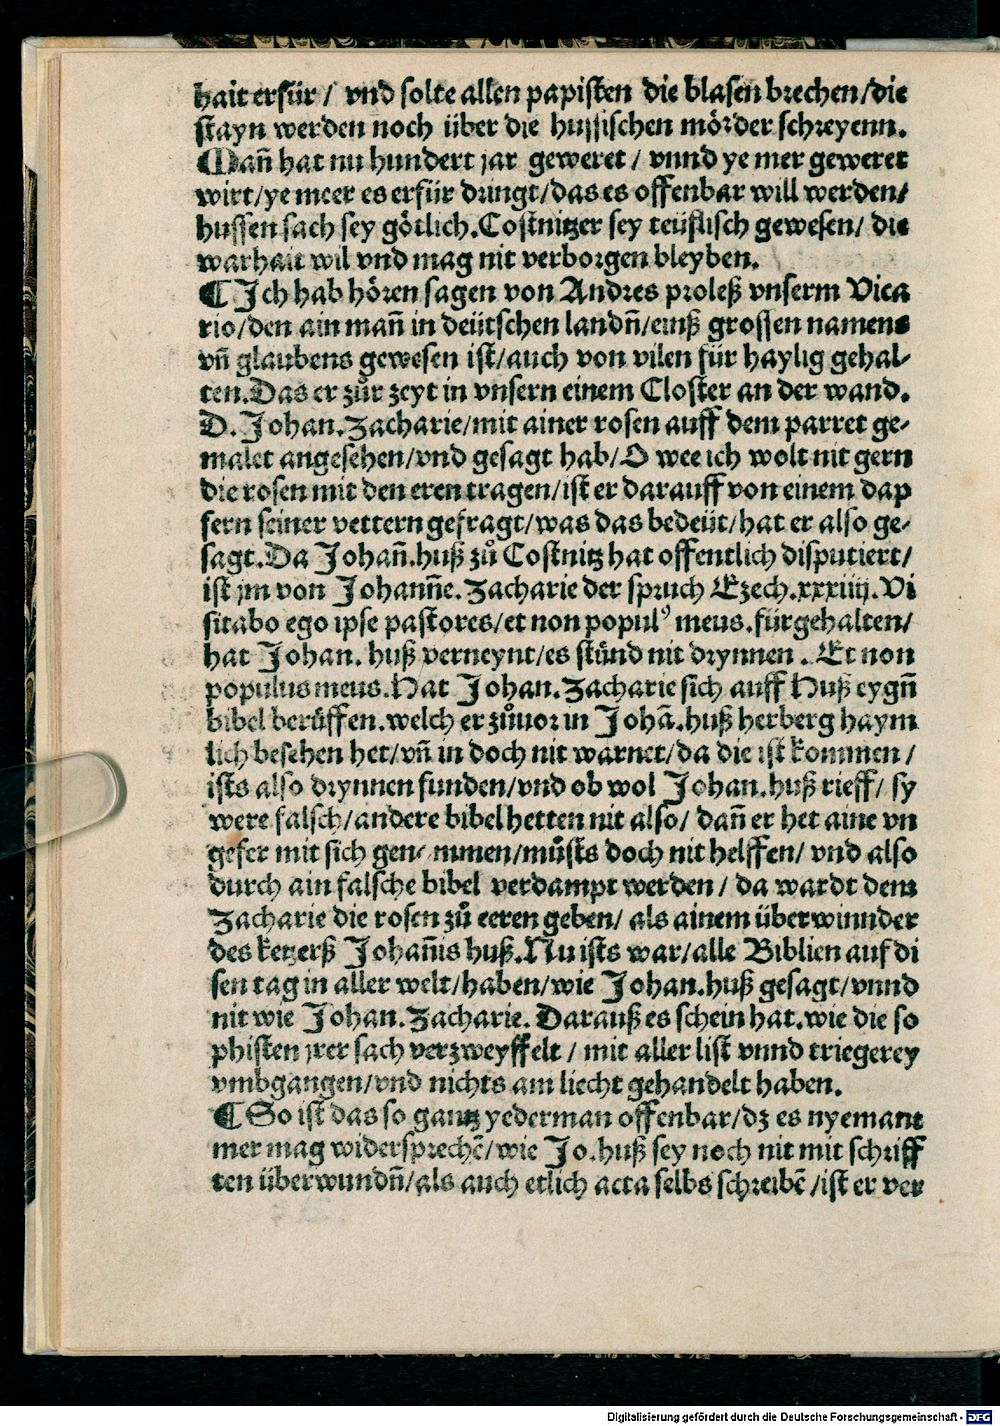 hait erfür / vnd solte allen papisten die blasen brechen/die
stayn werden noch über die hussischen mörder schreyenn.
Mañ hat nu hundert jar geweret / vnnd ye mer geweret
wirt/ye meer es erfür dringt/das es offenbar will werden/
hussen sach sey götlich.Costnitzer sey teüflisch gewesen/ die
warhait wil vnd mag nit verborgen bleyben.
¶ Ich hab hören sagen von Andres proleß vnserm Vica
rio/den ain mañ in deütschen landñ/einß grossen namens
vñ glaubens gewesen ist/auch von vilen für haylig gehal-
ten.Das er zůr zeyt in vnsern einem Closter an der wand.
D.Johan.Zacharie/mit ainer rosen auff dem parret ge-
malet angesehen/vnd gesagt hab/O wee ich wolt nit gern
die rosen mit den eren tragen/ist er darauff von einem dap
fern seiner vettern gefragt/was das bedeüt/hat er also ge-
sagt.Da Johañ.huß zů Costnitz hat offentlich disputiert/
ist jm von Johanñe.Zacharie der spruch Ezech.xxxiiij.Vi
sitabo ego ipse pastores/et non popul⁹ meus.fürgehalten/
hat Johan. huß verneynt/es stünd nit drynnen . Et non
populus meus.Hat Johan.Zacharie sich auff Huß eygñ
bibel berüffen.welch er zůuor in Johã.huß herberg haym
lich besehen het/vñ in doch nit warnet/da die ist kommen /
ists also drynnen funden/vnd ob wol Johan.huß rieff/ sy
were falsch/andere bibel hetten nit also/ dañ er het aine vn
gefer mit sich genommen/můsts doch nit helffen/ vnd also
durch ain falsche bibel verdampt werden / da wardt dem
Zacharie die rosen zů eeren geben/ als ainem überwinnder
des ketzerß Johañis huß.Nu ists war/alle Biblien auf di
sen tag in aller welt/haben/wie Johan.huß gesagt/vnnd
nit wie Johan.Zacharie. Darauß es schein hat.wie die so
phisten jrer sach verzweyffelt / mit aller list vnnd triegerey
vmbgangen/vnd nichts am liecht gehandelt haben.
¶ So ist das so gantz yederman offenbar/dz es nyemant
mer mag widersprechẽ/wie Jo.huß sey noch nit mit schriff
ten überwundñ/als auch etlich acta selbs schreibẽ /ist er ver
Digitalisierung gefördert durch die Deutsche Forschungsgemeinschaft - DFG